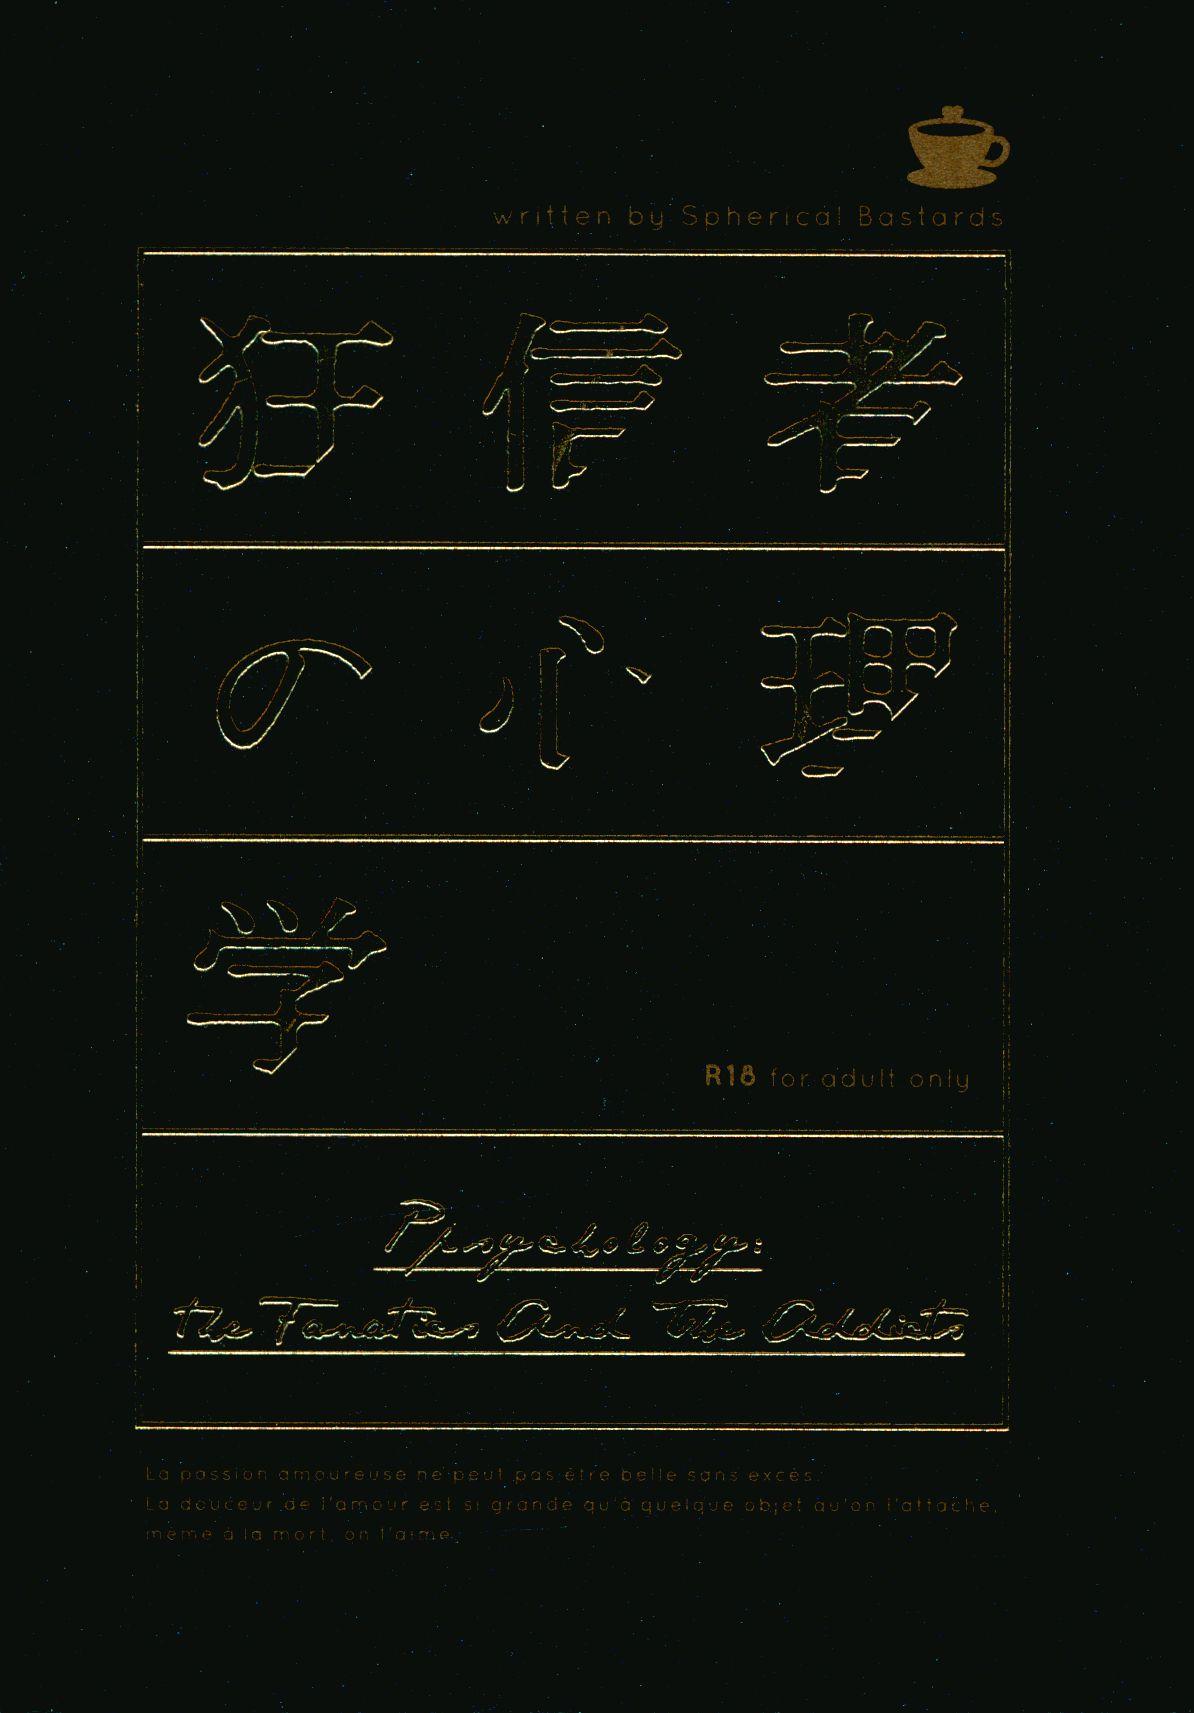 written by Spherical Bastards
狂信者
の心理
学
R18 for adult only
Ppsychology:
the Fanatics And The Addicts
La passion amoureuse ne peut pas être belle sans excès.
La douceur de l'amour est si grande qu'à quelque objet qu'on l'attache,
même à la mort, on l'aime.